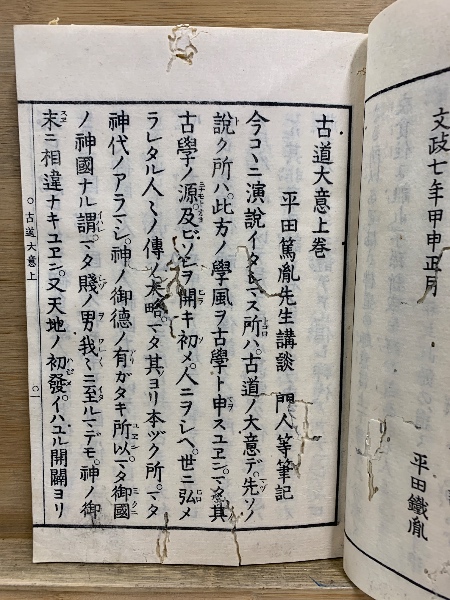 文政七年甲申正月
平田鐵胤
古道大意上巻
平田篤胤先生講談　門人等筆記
今コヽニ演説イタシマス所ハ。古道ノ大意デ。先ソノ
説ク所ハ。此方ノ學風ヲ古學ト申スユヱン。マタ其
古學ノ源。及ビソレヲ開キ初メ。人ニヲシヘ。世ニ弘メ
ラレタル人々ノ傳ノ大略。マタ其ヨリ本ヅク所。マタ
神代ノアラマシ。神ノ御德ノ有ガタキ所以。マタ御國
ノ神國ナル謂。マタ賤ノ男我々ニ至ルマデモ。神ノ御
末ニ相違ナキユヱン。又天地ノ初發。イハユル開闢ヨリ
○古道大意上
○一